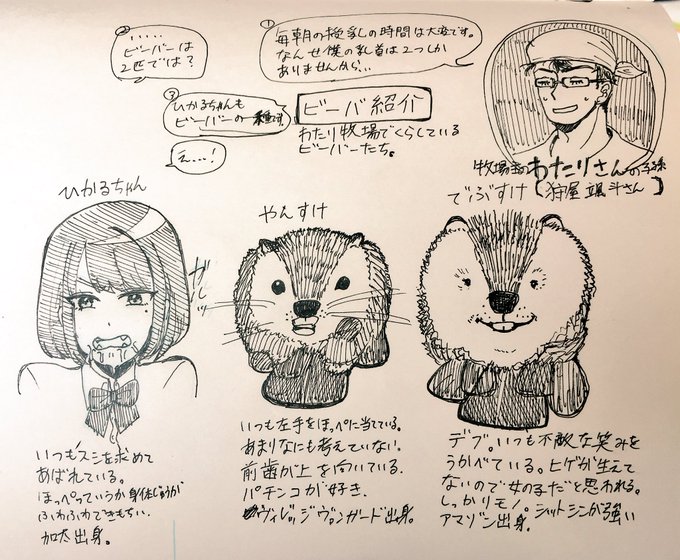 ①
毎朝の授乳の時間は大変です。
なんせ僕の乳首は2つしか
ありませんから…
②
……
ビーバーは
2匹では？
③
ひかるちゃんも
ビーバーの一種です
え…！
ビーバ紹介
わたり牧場でくらしている
ビーバーたち。
牧場主のわたりさんの子孫
(狩屋 颯斗さん)
ひかるちゃん
ガルッ
いつもスシを求めて
あばれている。
ほっぺっていうか身体じゅうが
ふわふわできもちい
加太出身。
やんすけ
いつも左手をほっぺに当てている。
あまりなにも考えていない。
前歯が上を向いている。
パチンコが好き.
ヴィレッジヴァンガード出身。
でぶすけ
デブ。いつも不敵な笑みを
うかべている。ヒゲが生えて
ないので女の子だと思われる。
しっかりモノ。シャットシンが強い
アマゾン出身.